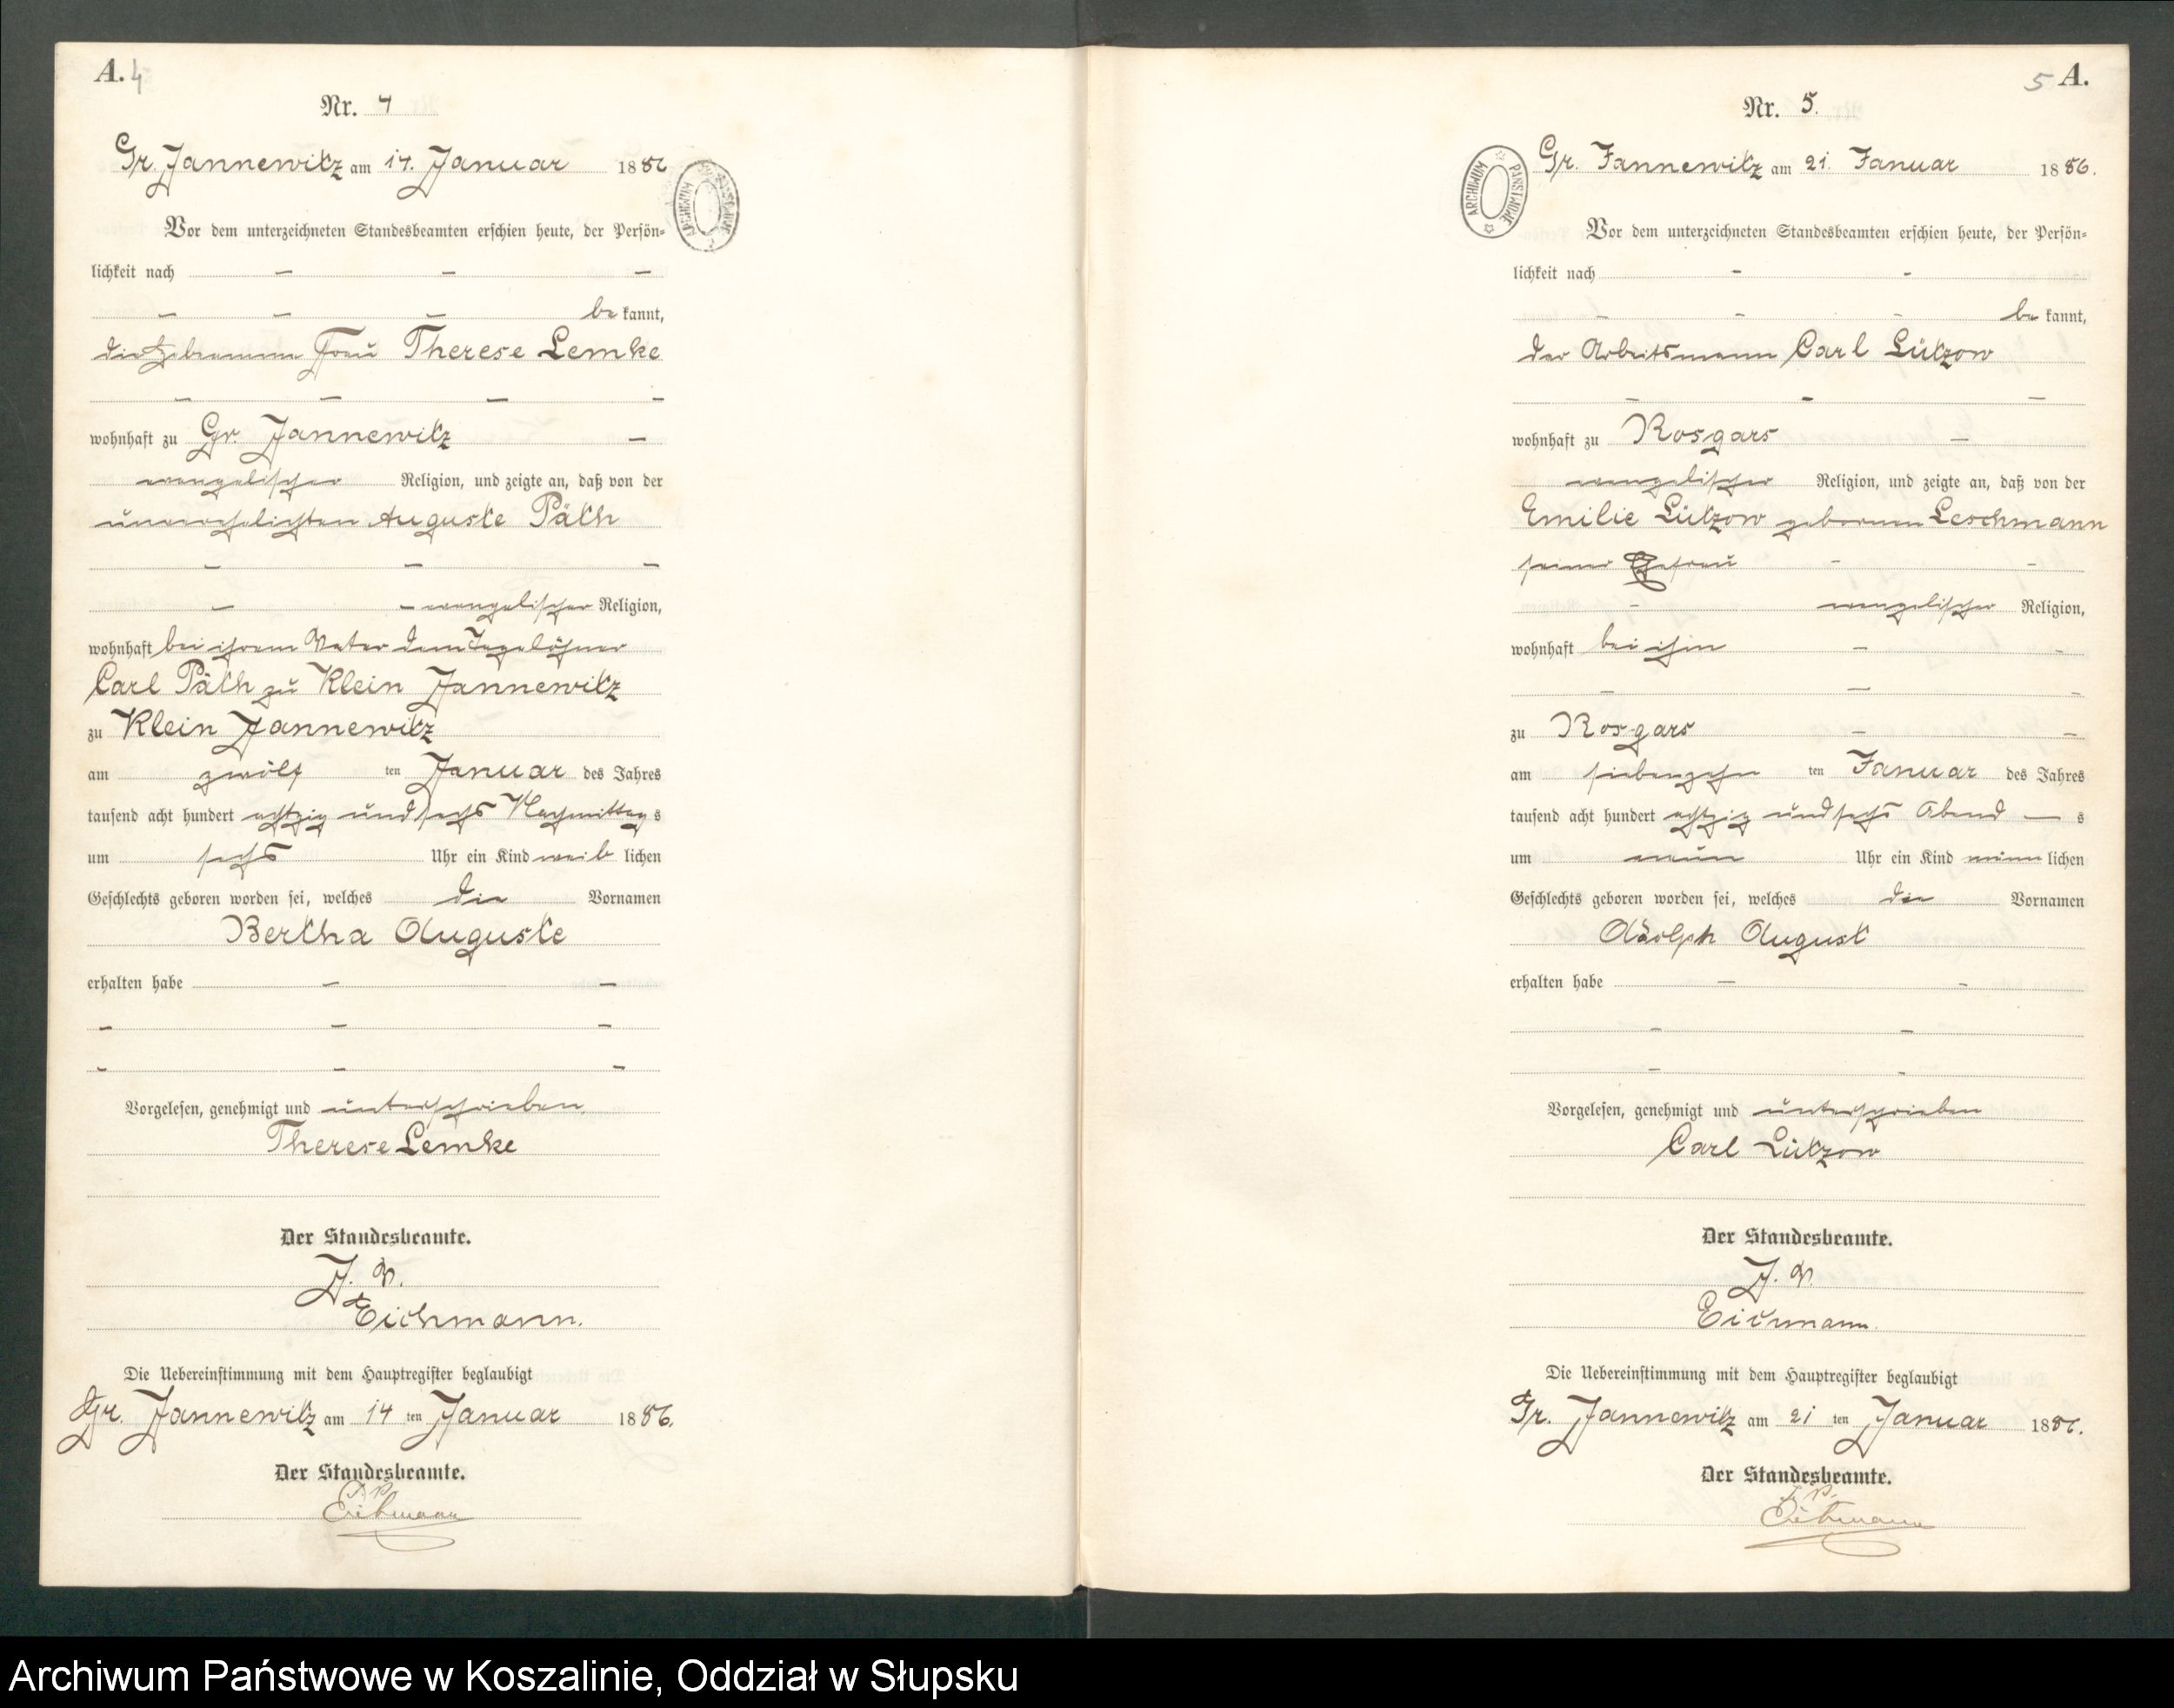 A. 4
Nr. 4
Gr. Jannewitz am 14. Januar 1886
ARCHIWUM PAŃSTWOWE
Vor dem unterzeichneten Standesbeamten erschien heute, der Persön-
lichkeit nach – – –
– – – be kannt,
die Hebamme Frau Therese Lemke
– – – –
wohnhaft zu Gr. Jannewitz –
evangelischer Religion, und zeigte an, daß von der
unverehelichten Auguste Päth
– – –
– – evangelischer Religion,
wohnhaft bei ihrem Vater dem Tagelöhner
Carl Päth zu Klein Jannewitz
zu Klein Jannewitz
am zwölf ten Januar des Jahres
tausend acht hundert achtzig und sechs Nachmittag s
um sechs Uhr ein Kind weib lichen
Geschlechts geboren worden sei, welches die Vornamen
Bertha Auguste
erhalten habe – –
– – –
– – –
Vorgelesen, genehmigt und unterschrieben
Therese Lemke
Der Standesbeamte.
J. V.
Eichmann.
Die Uebereinstimmung mit dem Hauptregister beglaubigt
Gr. Jannewitz am 14 ten Januar 1886.
Der Standesbeamte.
J. V.
Eichmann
5 A.
Nr. 5.
Gr. Jannewitz am 21. Januar 1886.
ARCHIWUM PAŃSTWOWE
Vor dem unterzeichneten Standesbeamten erschien heute, der Persön-
lichkeit nach – –
– – – be kannt,
der Arbeitsmann Carl Lützow
– – –
wohnhaft zu Rosgars –
evangelischer Religion, und zeigte an, daß von der
Emilie Lützow geborenen Leschmann
seiner Ehefrau – –
– evangelischer Religion,
wohnhaft bei ihm – –
– – –
zu Rosgars – –
am siebenzehn ten Januar des Jahres
tausend acht hundert achtzig und sechs Abend – s
um neun Uhr ein Kind männ lichen
Geschlechts geboren worden sei, welches die Vornamen
Adolph August
erhalten habe – –
– –
– –
Vorgelesen, genehmigt und unterschrieben
Carl Lützow
Der Standesbeamte.
J. V.
Eichmann.
Die Uebereinstimmung mit dem Hauptregister beglaubigt
Gr. Jannewitz am 21 ten Januar 1886.
Der Standesbeamte.
J. V.
Eichmann
Archiwum Państwowe w Koszalinie, Oddział w Słupsku